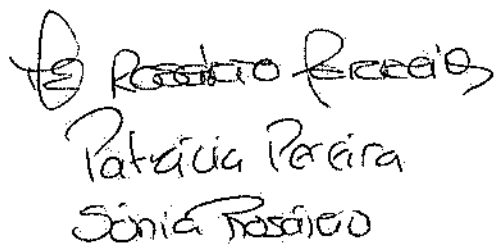 Rosário Ferreira
Patrícia Pereira
Sónia Rosário